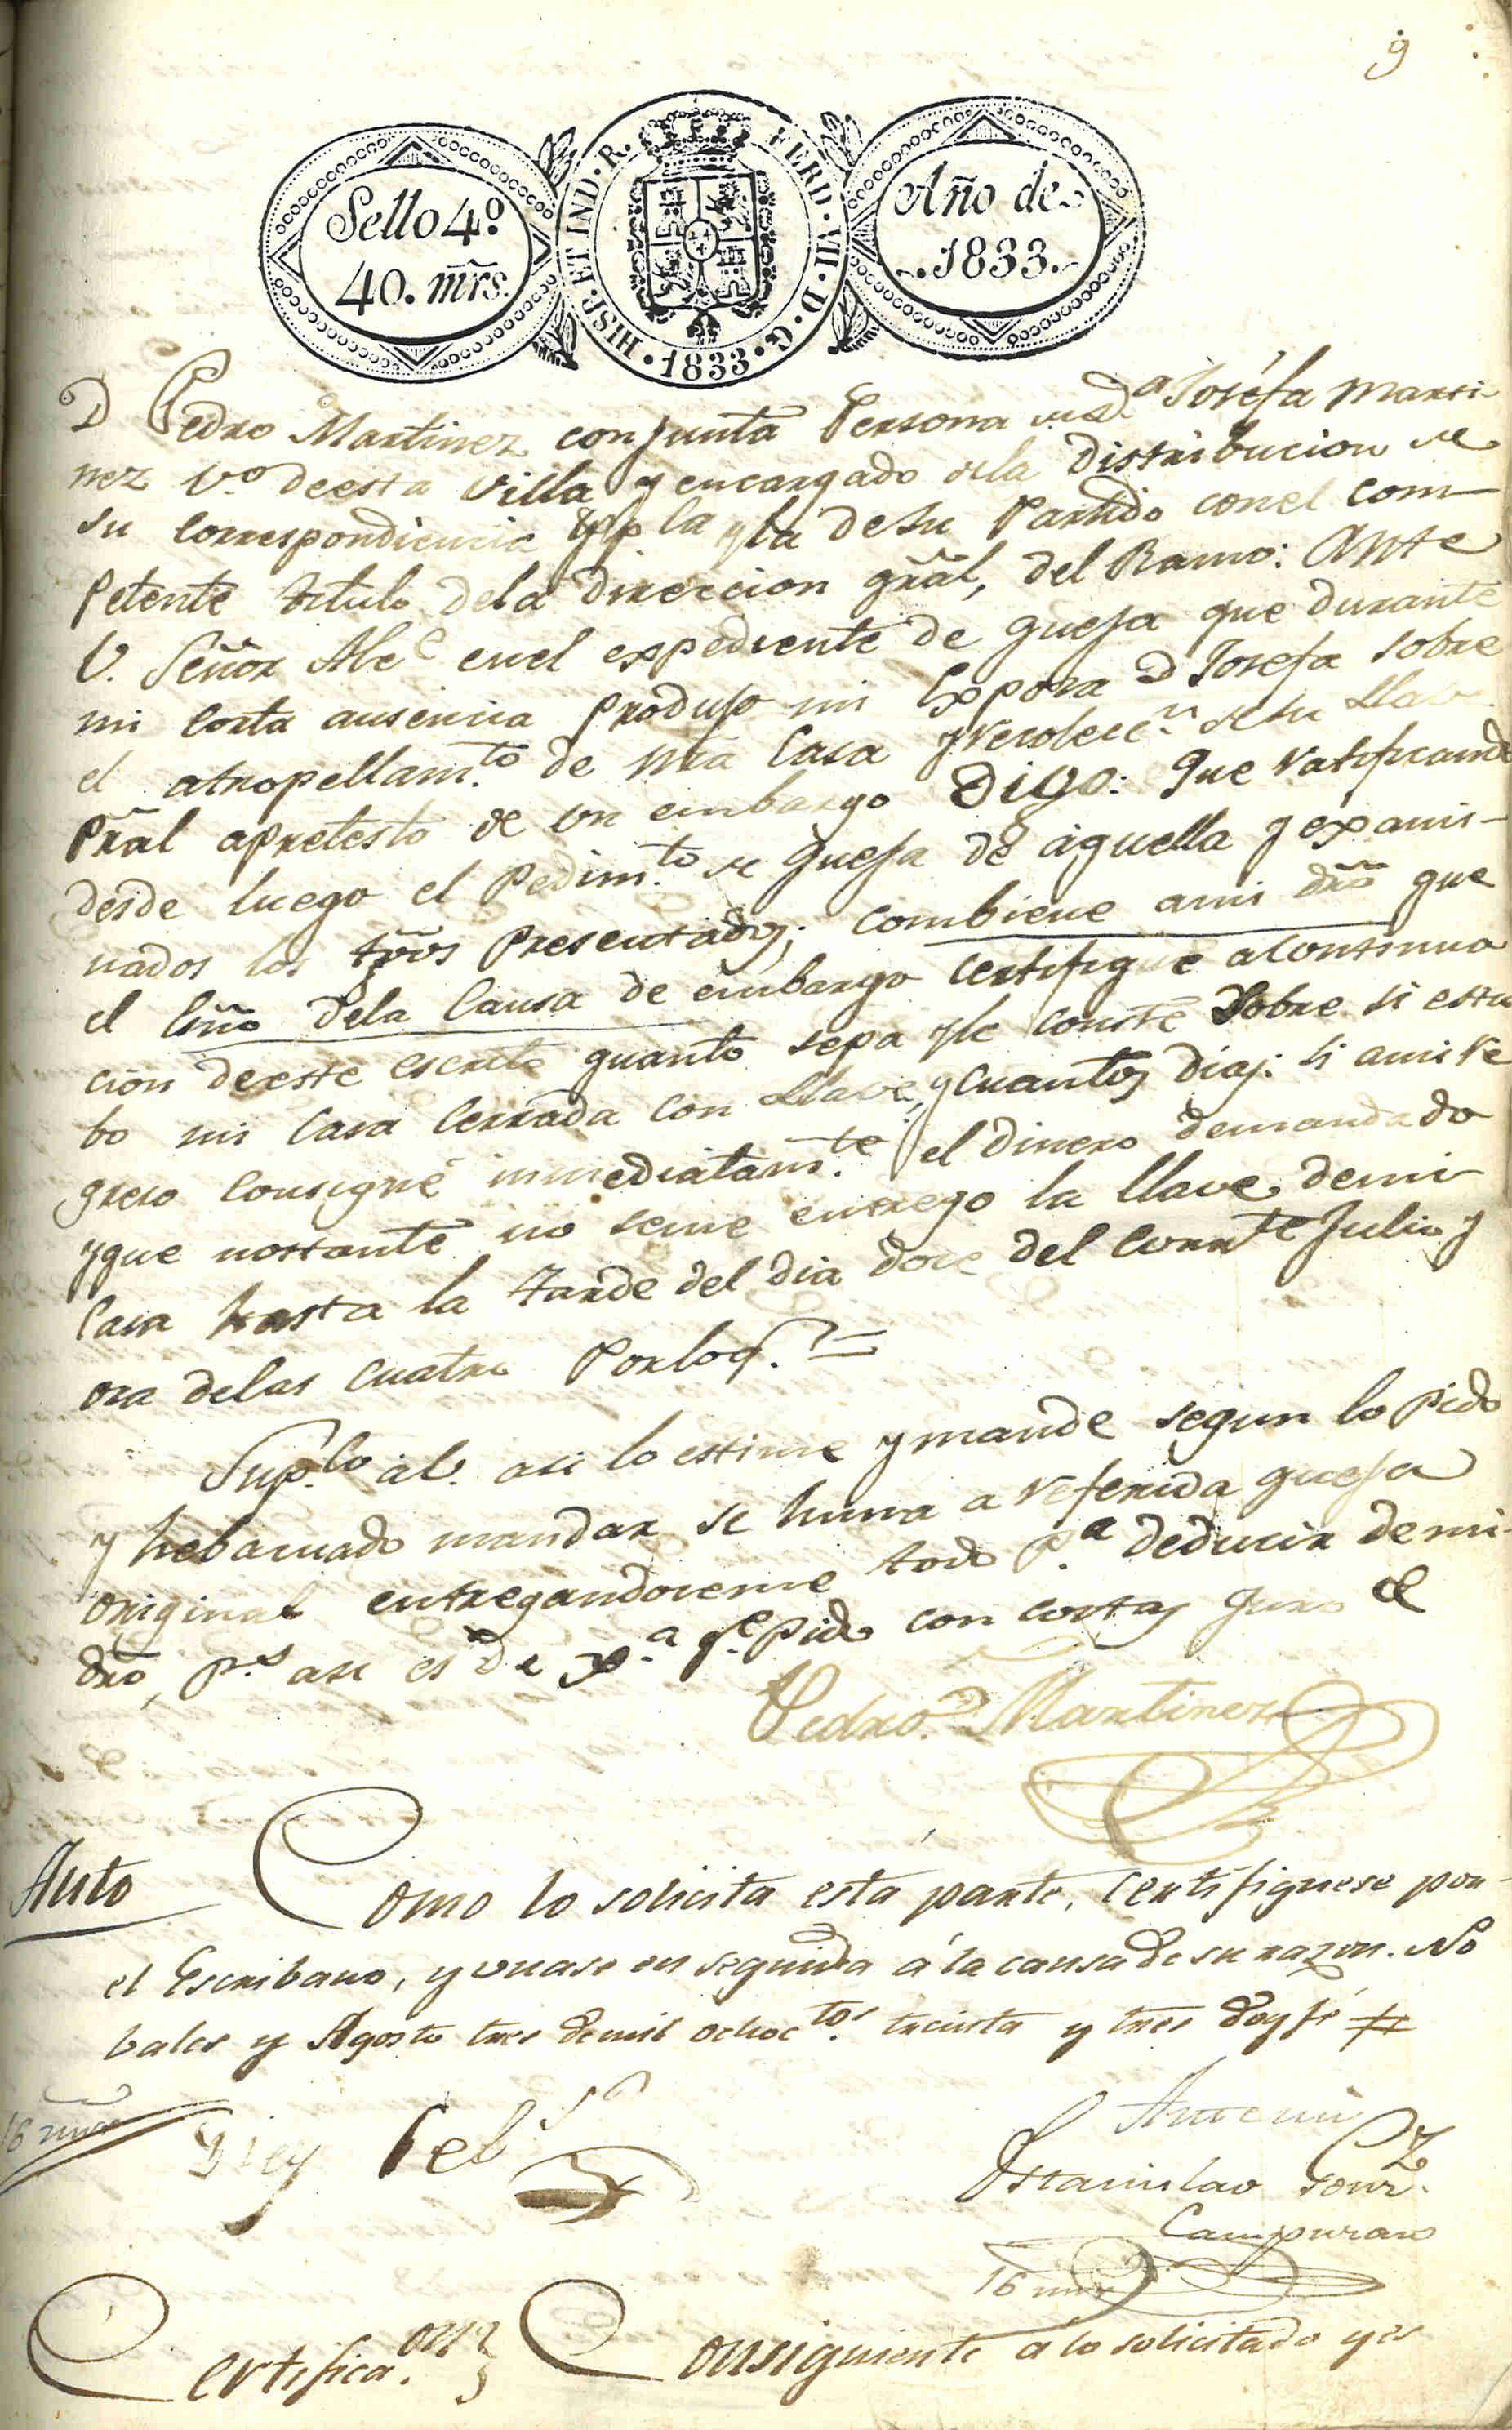 9
Sello 4º
40. mrs.
HISP. ET IND. R. FERD. VII. D. G. 1833.
Año de
1833.
D Pedro Martinez conjunta Persona de Dª Josefa Marti-
nez Vº deesta Villa y encargado dela distribucion de
su correspondiencia y la de su Partido conel com-
petente titulo dela direccion gral, del Ramo: Ante
V. Señor Alce enel expediente de queja que durante
mi corta ausencia produjo mi Esposa D Josefa sobre
el atropellamto de nra Casa y de su Llave
pral apretesto de un embargo Digo: que ratificando
desde luego el Pedimto de queja de aquella y exami-
nados los tgos Presentados; combiene ami dro que
el Esno dela Causa de embargo certifique acontinua
cion deeste escrito quanto sepa yle conste sobre si estu
bo mi Casa cerrada con Llave, y cuantos dias: si ami re
greso consigné inmediatamte el dinero demandado
yque nostante no seme entrego la llave demi
Casa hasta la tarde del dia doce del corrte Julio y
ora delas cuatro Porloq. =
Supco aV. asi lo estime ymande segun lo pido
y hebacuado mandar se huna a referida queja
original entregandoseme todo pª deducir demi
dro, ps asi es de Jª qe pido con costas Juro &
Pedro Martinez
Auto Como lo solicita esta parte, certifiquese por
el Escribano, y unase en seguida á la causa de su razon. No
bales y Agosto tres demil ochoctos treinta y tres doy fé #
16 mrs
Antemi
Estanislao Gonz
Campuzano
16 mrs
Certificaon} Consiguiente a lo solicitado y es